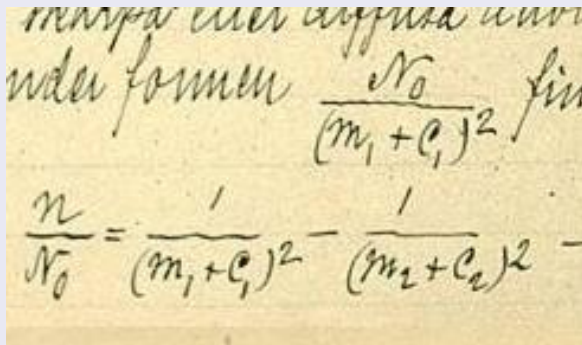 skarpa eller diffusa
under formen N₀/(m₁ + c₁)²
n/N₀ = 1/(m₁+c₁)² − 1/(m₂+c₂)² −